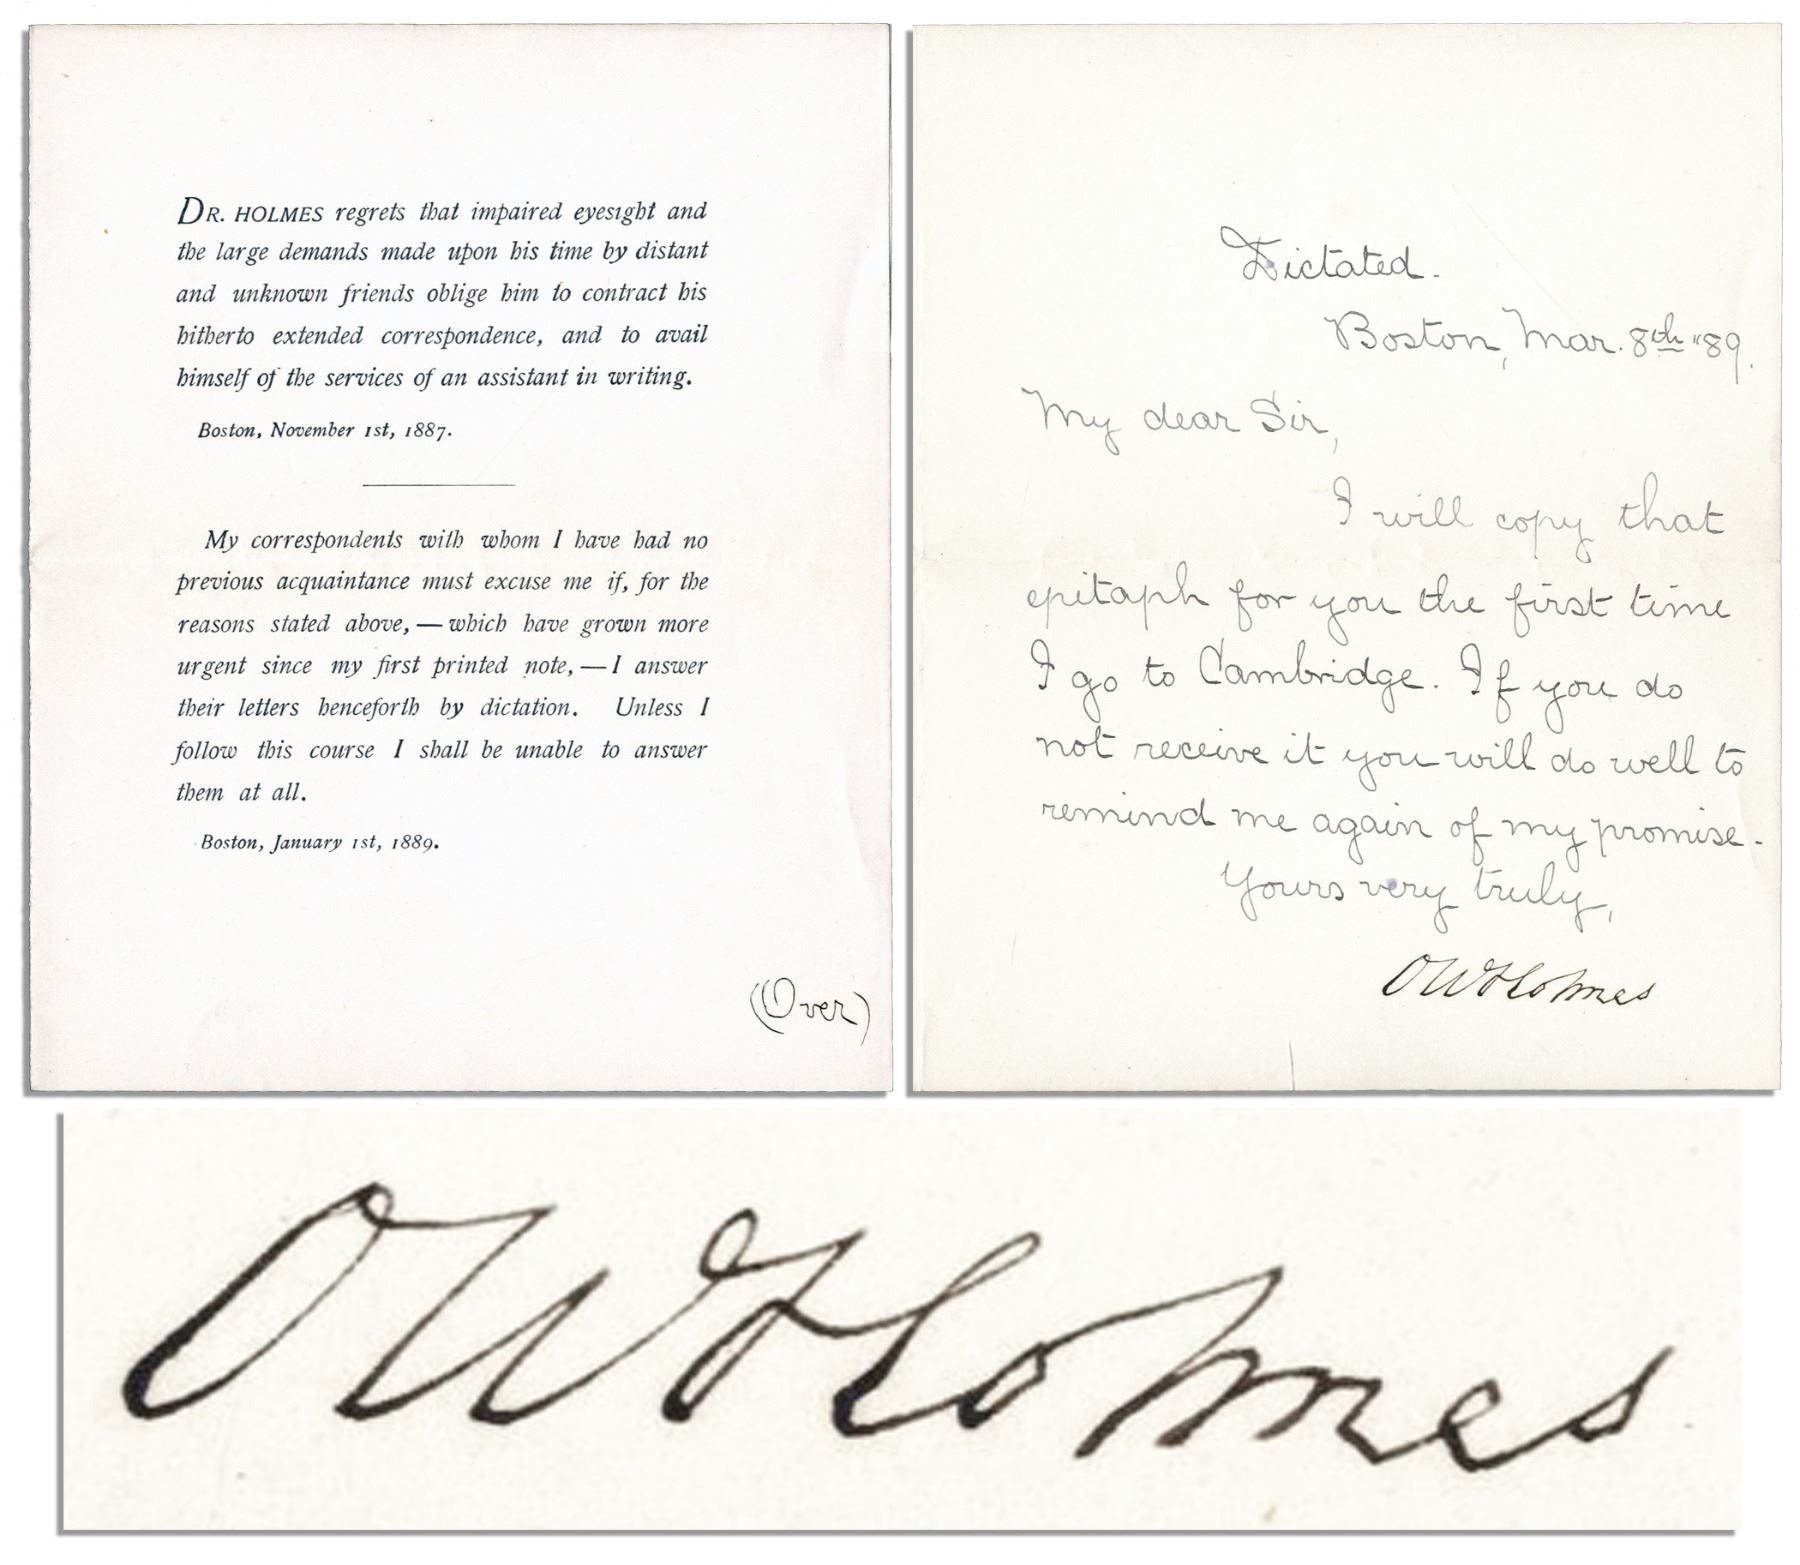 DR. HOLMES regrets that impaired eyesight and
the large demands made upon his time by distant
and unknown friends oblige him to contract his
hitherto extended correspondence, and to avail
himself of the services of an assistant in writing.
Boston, November 1st, 1887.
My correspondents with whom I have had no
previous acquaintance must excuse me if, for the
reasons stated above, — which have grown more
urgent since my first printed note, — I answer
their letters henceforth by dictation. Unless I
follow this course I shall be unable to answer
them at all.
Boston, January 1st, 1889.
(Over)
Dictated.
Boston, Mar. 8th "89.
My dear Sir,
I will copy that
epitaph for you the first time
I go to Cambridge. If you do
not receive it you will do well to
remind me again of my promise.
Yours very truly,
O W Holmes
O W Holmes